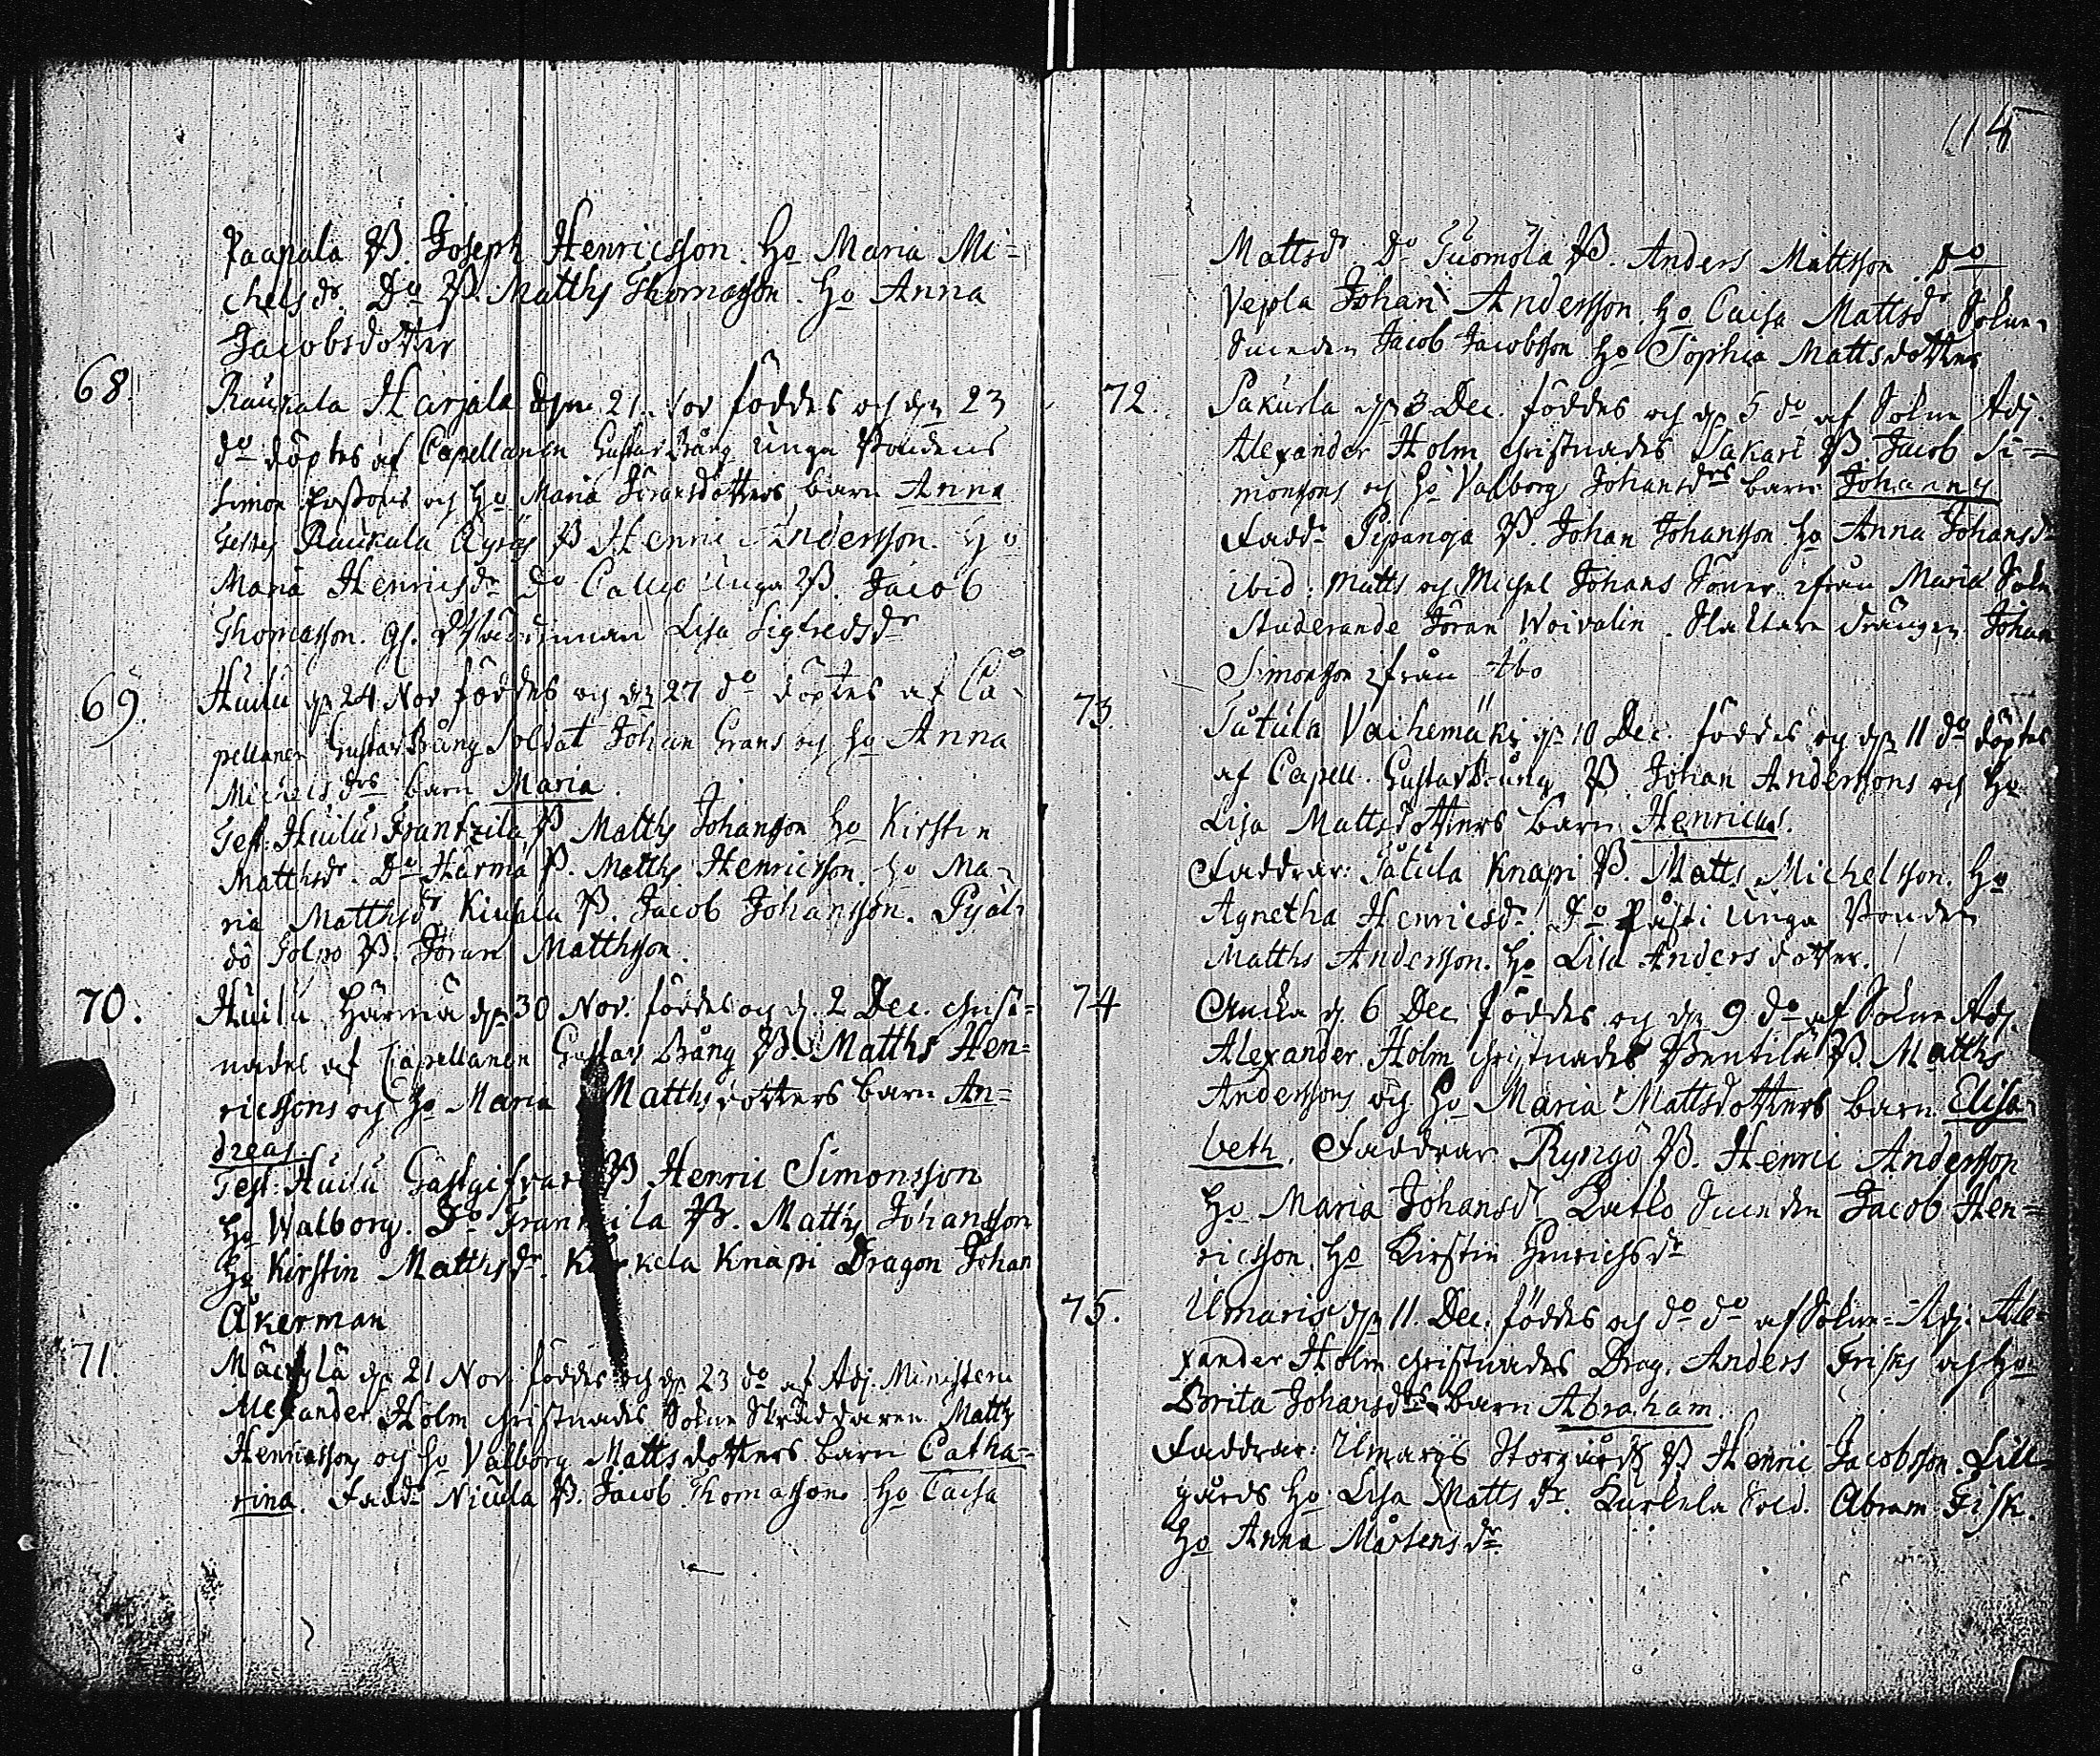 Paapala B. Joseph Henricsson. Ho Maria Mi=
chelsdr. Do B. Matths Thomasson. Ho Anna
Jacobsdotter
68. Raukala Harjala den 21. Nov föddes och den 23
do döptes af Capellanen Gustav Bång Unga Bondens
Simon och Ho Maria barn Anna
Raukala B Henric Andersson. Ho
Maria Henricsdr Do Unga B. Jacob
Thomasson. Gl. Lisa Sigfredsdr
69. Huilu den 24 Nov föddes och den 27 do döptes af Ca=
pellanen Gustav Bång Soldat Johan Grans och Ho Anna
Michelsdrs barn Maria.
Test: Huilu Frantzila B Matths Johansson Ho Kirstin
Matthsdr. Do Härmä B. Matths Henricsson. Ho Ma=
ria Matthsdr B. Jacob Johansson. Pyäl=
dö Tolpo B. Jöran Matthsson.
70. Huilu Härmä den 30 Nov. föddes och d. 2 Dec. christ=
nades af Capellanen Gustav Bång B. Matths Hen=
ricssons och Ho Maria Matthsdotters barn An=
dreas
Test: Huilu Gästgifvare B Henric Simonsson
Ho Walborg. Do Frantzila B. Matths Johansson
Ho Kirstin Matthsdr. Knapi Dragon Johan
Åkerman
71. Mäenylä den 21 Nov. föddes och den 23 do af Adj. Ministerii
Alexander Holm christnades Sokne Skräddaren Matts
Henricssons och Ho Valborg Mattsdotters barn Catha=
rina. Faddr Nicula B. Jacob Thomasson Ho Caisa
114
Mattsdr. Do Tuomola B. Anders Mattsson Do
Vepla Johan Andersson. Ho Caisa Mattsdr Sokne=
Smeden Jacob Jacobsson Ho Sophia Mattsdotter
72. Pakurla den 3 Dec. föddes och den 5 do af Sokne Adj.
Alexander Holm christnades Sakari B. Jacob Si=
monsons och Ho Valborg Johansdrs barn Johannes
Faddr Pipanoja B. Johan Johansson Ho Anna Johansdr
ibid: Matts och Michel Johans Söner ifrån Sokn
Studerande Jöran Woivalin. Slaktare drängen Johan
Simonsson ifrån Åbo
73. Tåtula Vaihemäki den 10 Dec. föddes och den 11 do döptes
af Capell. Gustav Bång B. Johan Anderssons och Ho
Lisa Mattsdotters barn Henricus.
Faddrar: Tåtula Knapi B. Matts Michelsson. Ho
Agnetha Henricsdr. Do Unga Bonden
Matths Andersson. Ho Lisa Andersdotter.
74 d. 6 Dec. föddes och den 9 do af Sokne Adj.
Alexander Holm christnades Pentilä B. Matths
Anderssons och Ho Maria Mattsdotters barn Elisa=
beth. Faddrar Ryngö B. Henric Andersson
Ho Maria Johansdr. Smeden Jacob Hen=
ricsson, Ho Kirstin Henrichsdr
75. Uimaris den 11. Dec. föddes och do do af Sokne=Adj. Ale=
xander Holm christnades Drag. Anders Frisks och Ho
Brita Johansdrs barn Abraham.
Faddrar: Uimaris Storgårds B Henric Jacobsson. Lill=
gårds Ho Lisa Mattsdr. Kurkela Sold. Abram Fisk.
Ho Anna Mårtensdr